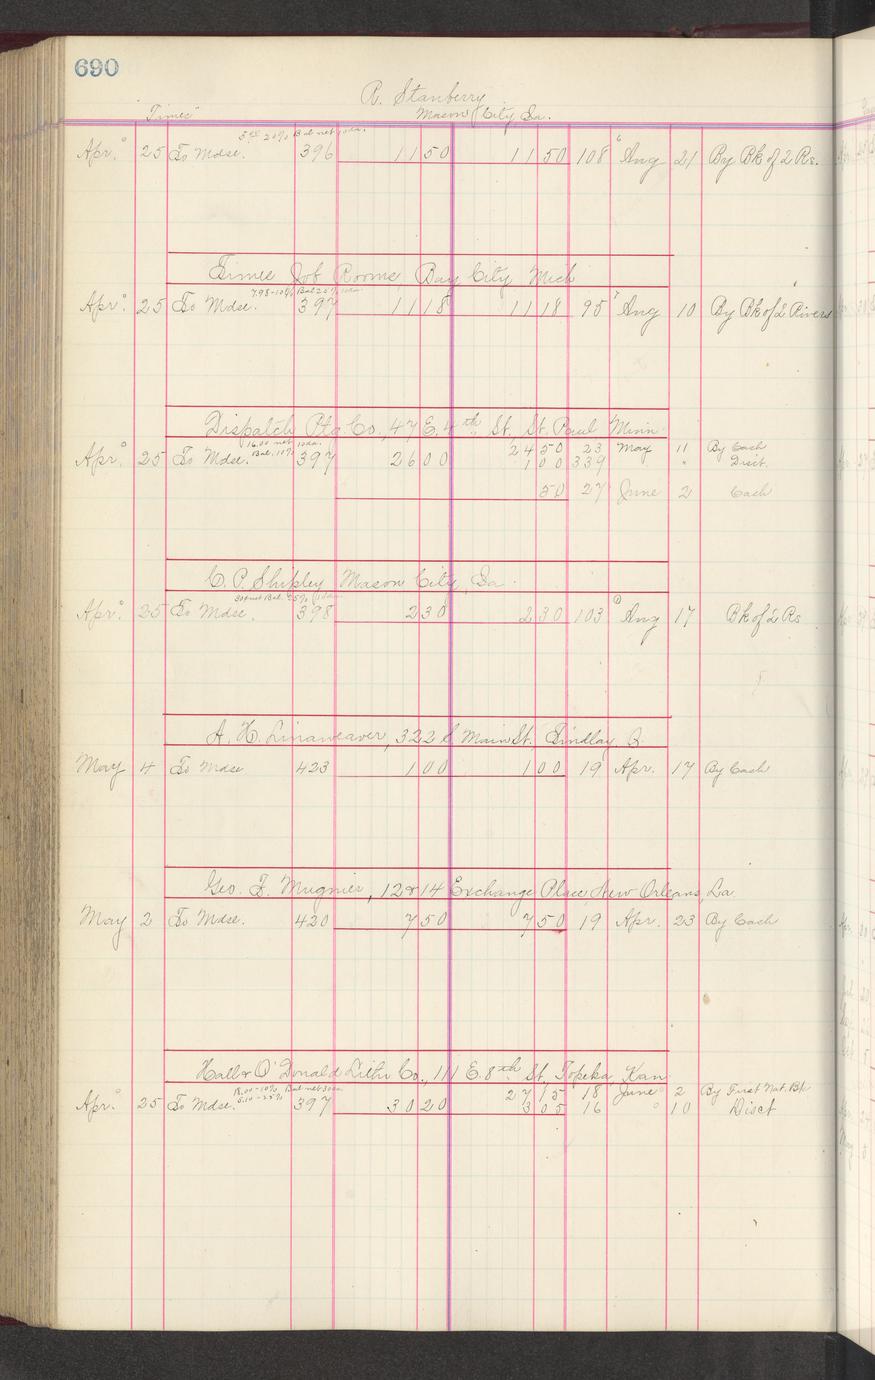 690
R. Stanberry
"Times" Mason City Ia.
5.00 20% Bal net 10da.
Apr. 25 To Mdse. 396 11 50 11 50 108 Aug 21 By Bk of 2 Rs.
Times Job Rooms, Bay City Mich
7.98-10% Bal 25% 10da.
Apr. 25 To Mdse. 397 11 18 11 18 95 Aug 10 By Bk of 2 Rivers
Dispatch Ptg Co., 47 E. 4th St, St. Paul Minn.
16.00 net 10da. 24 50 23 May 11 By Cash
Apr. 25 To Mdse. Bal. 10% 397 26 00 1 00 339 " Disct.
50 27 June 2 Cash
C. P. Shipley Mason City, Ia.
Bal. 25% 10da
Apr. 25 To Mdse. 398 2 30 2 30 103 Aug 17 Bk of 2 Rs
A. H. Linaweaver, 322 S Main St., Findlay, O.
May 4 To Mdse 423 1 00 1 00 19 Apr. 17 By Cash
Geo. F. Mugnier, 12 & 14 Exchange Place New Orleans, La.
May 2 To Mdse. 420 7 50 7 50 19 Apr. 23 By Cash
Hall & O'Donald Litho Co., 111 E. 8th St, Topeka, Kan
18.00-10% Bal net 30da 27 15 18 June 2 By First Nat. Bk
Apr. 25 To Mdse. 5.10-25% 397 30 20 3 05 16 " 10 Disct